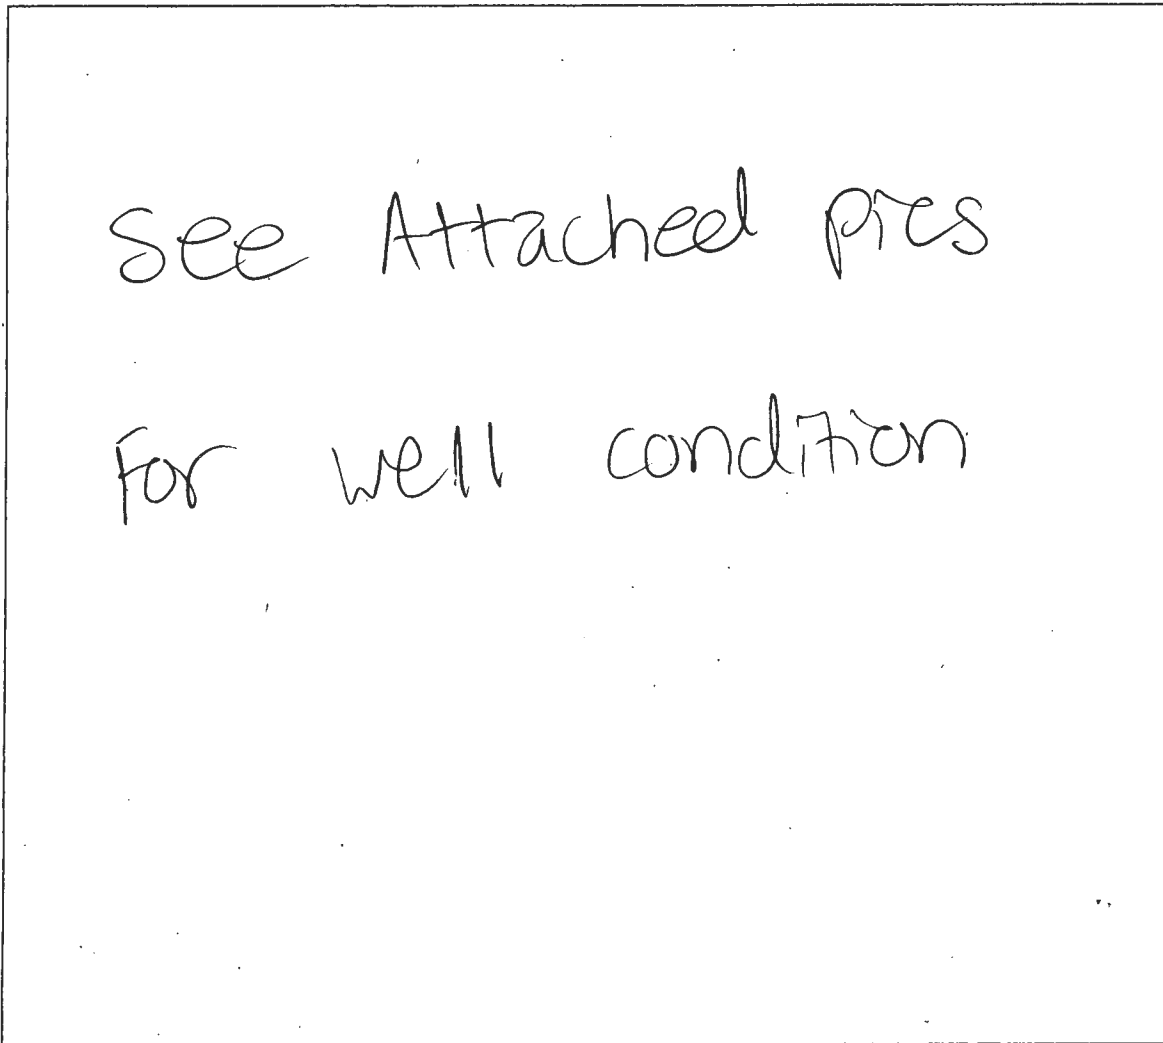 See Attached pics
For well condition